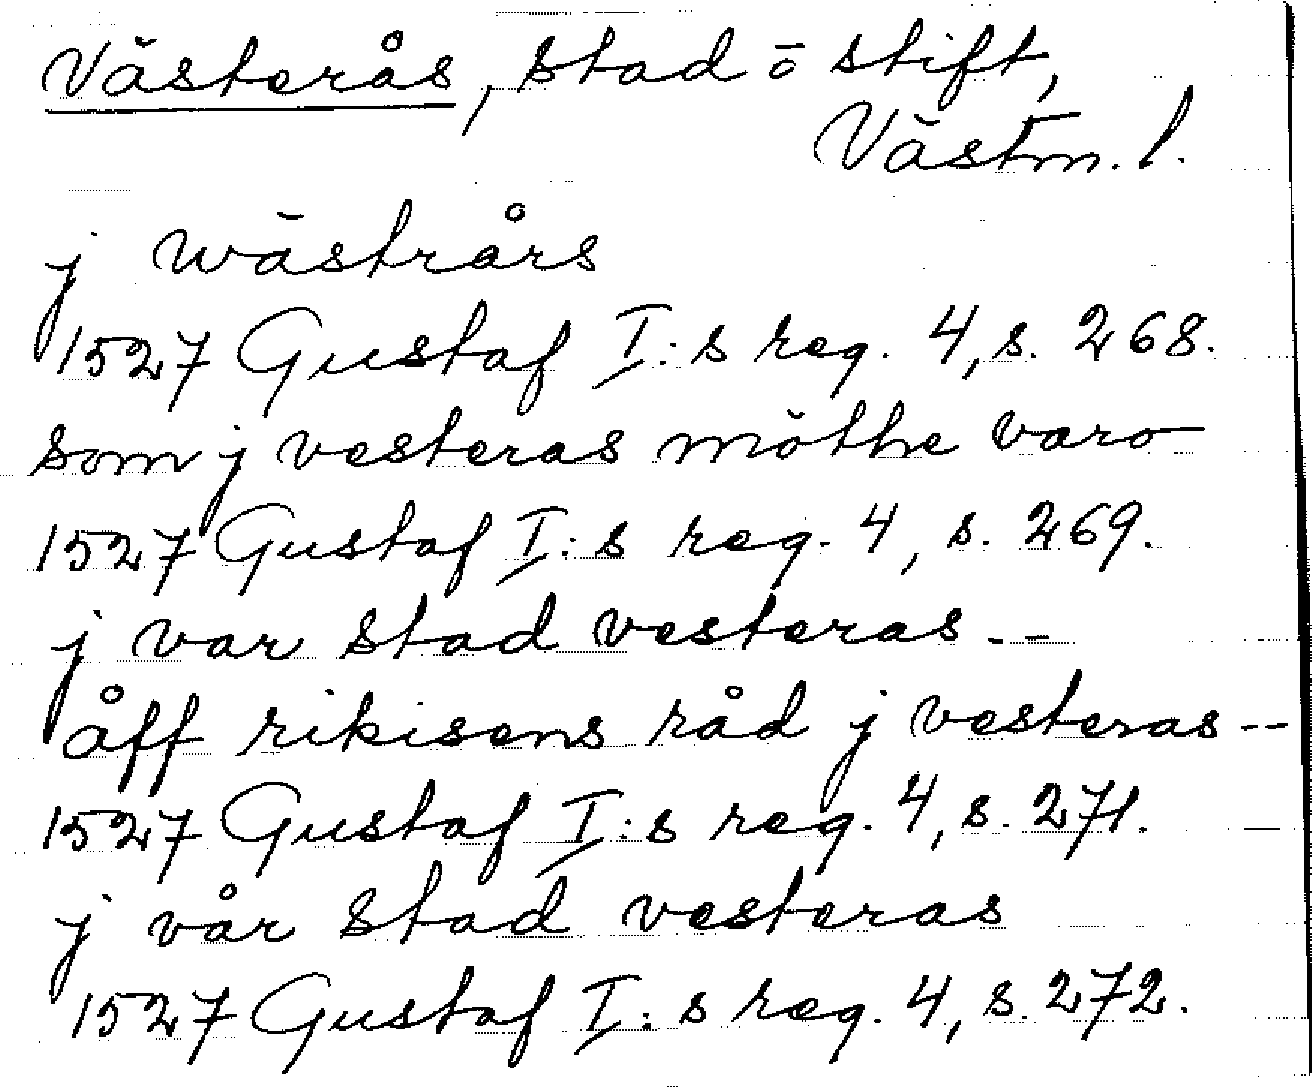 Västerås, stad ō stift,
Västm. l.
j wästrårs
1527 Gustaf I:s reg. 4, s. 268.
som j vesteras möthe varo
1527 Gustaf I:s reg. 4, s. 269.
j var stad vesteras --
åff rikisens råd j vesteras --
1527 Gustaf I:s reg. 4, s. 271.
j vår stad vesteras
1527 Gustaf I:s reg. 4, s. 272.